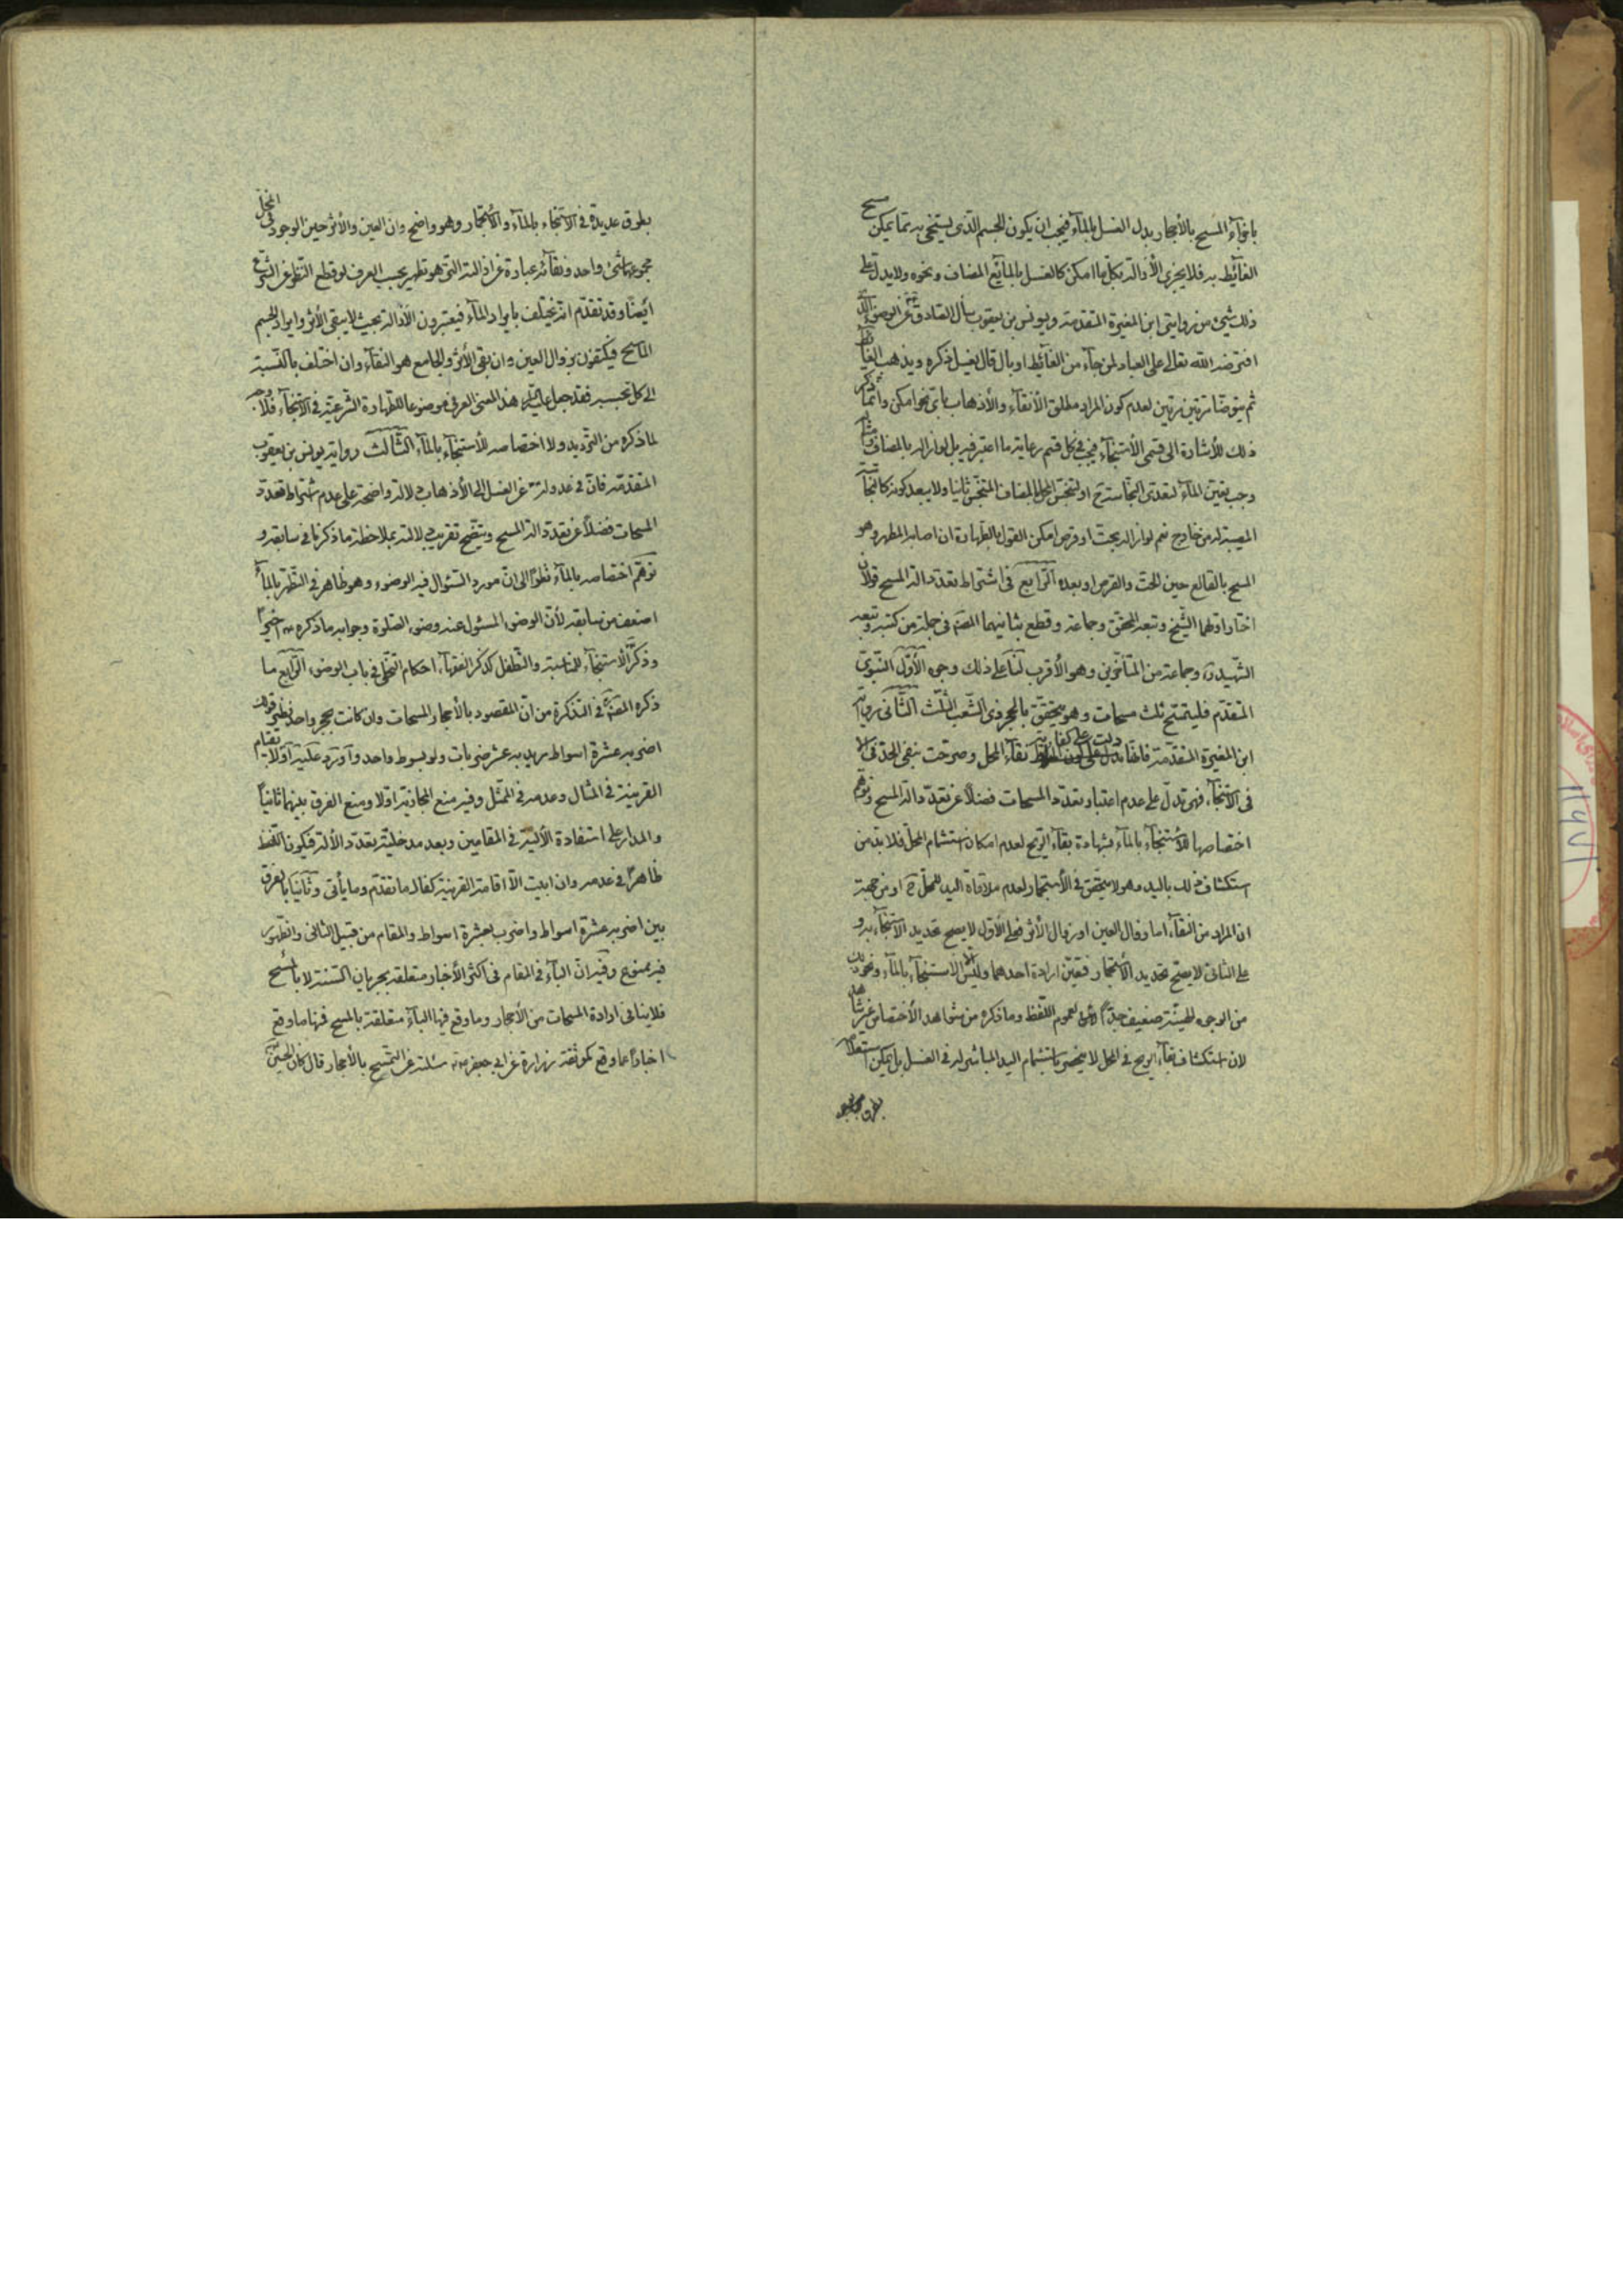 باجزاء المسح بالأحجار بدل الغسل بالماء فيجب ان يكون الجسم الذى يستنجى به مما يمكن مسح
الغائط به فلا يجزى الأزالة بكل ما امكن كالغسل بالمايع المضاف ونحوه ولا يدل على
ذلك شىء من روايتى ابن المغيرة المتقدمة ويونس بن يعقوب سأل الصادق عن الوضوء الذى
افترضه الله تعالى على العباد لمن جاء من الغائط او بال قال يغسل ذكره ويذهب الغائط
ثم يتوضأ مرتين مرتين لعدم كون المراد مطلق الأنقاء والأذهاب باى نحو امكن وانما ذكر
ذلك للأشارة الى قسمى الأستنجاء فيجب فى كل قسم رعاية ما اعتبر فيه بل لو ازاله بالمضاف
وجب تعين الماء لتعدى النجاسة ح او لتنجس المحل بالمضاف المتنجس ثانيا ولا يبعد كونه كالنجاسة
المصيبة له من خارج نعم لو ازاله بحت او قرص امكن القول بالطهارة ان اصابه المطهر وهو
المسح بالقالع حين الحت والقرص او بعده الرابع فى اشتراط تعدد الة المسح قولان
اختار اولهما الشيخ وتبعه المحقق وجماعة وقطع بثانيهما المصنف فى جملة من كتبه وتبعه
الشهيد وجماعة من المتأخرين وهو الأقرب لنا على ذلك وجوه الأول النبوى
المتقدم فليتمسح ثلث مسحات وهو يتحقق بالحجر ذى الشعب الثلث الثانى رواية
ابن المغيرة المتقدمة فانها دلت على كفاية نقاء المحل وصرحت بنفى الحد
فى الاستنجاء فهى تدل على عدم اعتبار تعدد المسحات فضلا عن تعدد الة المسح وتوهم
اختصاصها بالأستنجاء بالماء بشهادة بقاء الريح لعدم امكان استشمام المحل فلا بد من
استكشاف ذلك باليد وهو لا يتحقق فى الأستجمار لعدم ملاقاة اليد للمحل ح او من جهة
ان المراد من النقاء اما زوال العين او زوال الأثر فعلى الأول لا يصح تحديد الاستنجاء به و
على الثانى لا يصح تحديد الأستجمار فيتعين ارادة احدهما وليس الا الاستنجاء بالماء ونحو ذلك
من الوجوه الهينة ضعيف جدا لعموم اللفظ وما ذكره من شواهد الأختصاص غير شاهد
لان استكشاف بقاء الريح فى المحل لا ينحصر باستشمام اليد المباشر له فى الغسل بل يمكن استعلامه
بطرق عديدة
بطرق عديدة فى الاستنجاء بالماء والأستجمار وهو واضح وان العين والأثر حين الوجود فى المحل
مجموعهما شىء واحد ونقائه عبارة عن ازالته التى هو تطهير بحسب العرف لو قطع النظر عن الشرع
أيضا وقد تقدم انه يختلف بايراد الماء فيعتبرون الأزالة بحيث لا يبقى الأثر وايراد الجسم
الماسح فيكتفون بزوال العين وان بقى الأثر والجامع هو النقاء وان اختلف بالنسبة
الى كل بحسبه فقد جعل هذا المعنى العرفى موضوعا للطهارة الشرعية فى الاستنجاء فلا وجه
لما ذكره من الترديد ولا اختصاصه للأستنجاء بالماء الثالث رواية يونس بن يعقوب
المتقدمة فان فى عدوله عن الغسل الى الأذهاب دلالة واضحة على عدم اشتراط تعدد
المسحات فضلا عن تعدد الة المسح ويتضح تقريب دلالته بملاحظة ما ذكرنا فى سابقه و
توهم اختصاصه بالماء نظرا الى ان مورد السئوال فيه الوضوء وهو ظاهر فى التطهر بالماء
اضعف من سابقه لأن الوضوء المسئول عنه وضوء الصلوة وجوابه ما ذكره اخيرا
وذكر الاستنجاء للمناسبة والتطفل كذكر الفقهاء احكام التخلى فى باب الوضوء الرابع ما
ذكره المصنف فى التذكرة من ان المقصود بالأحجار المسحات وان كانت بحجر واحد نظير قولك
اضربه عشرة اسواط يريد به عشر ضربات ولو بسوط واحد واورد عليه اولا بقيام
القرينة فى المثال وعدمه فى الممثل وفيه منع المجازية اولا ومنع الفرق بينهما ثانيا
والمدار على استفادة الألية فى المقامين وبعد مدخلية تعدد الألة فيكون اللفظ
ظاهرا فى عدمه وان ابيت الا اقامة القرينة كفاك ما تقدم وما يأتى وثانيا بالفرق
بين اضربه عشرة اسواط واضرب بعشرة اسواط والمقام من قبيل الثانى والظهور
فيه ممنوع وفيه ان الباء فى المقام فى اكثر الأخبار متعلقة بجريان السنة لا بالمسح
فلا ينافى ارادة المسحات من الأحجار وما وقع فيها الباء متعلقة بالمسح فمنها ما وقع
اخبارا عما وقع كموثقة زرارة عن ابى جعفر سئلته عن التمسح بالأحجار قال كان الحسين